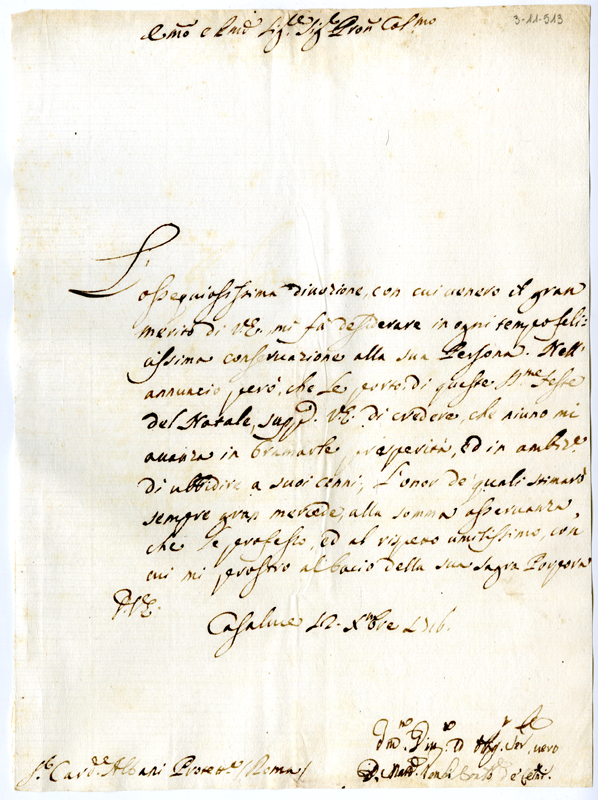 3-11-913
Emo e Rmo Sig.re Sig.re Pron Colmo
L'ossequiosissima divozione, con cui venero il gran
merito di V.E., mi fà desiderare in ogni tempo feli=
cissima conservazione alla sua Persona. Nell'
annuncio però, che Le porto di queste S.me Feste
del Natale, supp.o V.E. di credere, che niuno mi
avanza in bramarle prosperità, ed in ambiz.e
di ubbidire a suoi cenni, L'onor de quali stimarò
sempre gran mercede, alla somma osservanza,
che Le professo, ed al rispetto umilissimo, con
cui mi prostro al bacio della sua Sagra Porpora
D. V.E.
Casaluce 12. Xbre 1716.
S.r Card.le Albani Protett.e (Roma)